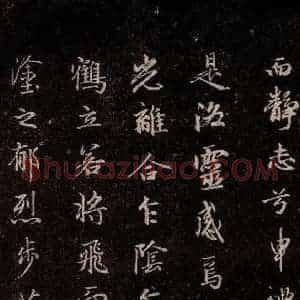 而靜志兮申禮
是洛靈感焉
光離合乍陰乍
鶴立若將飛而
塗之郁烈步蘅
Shufazidao.com